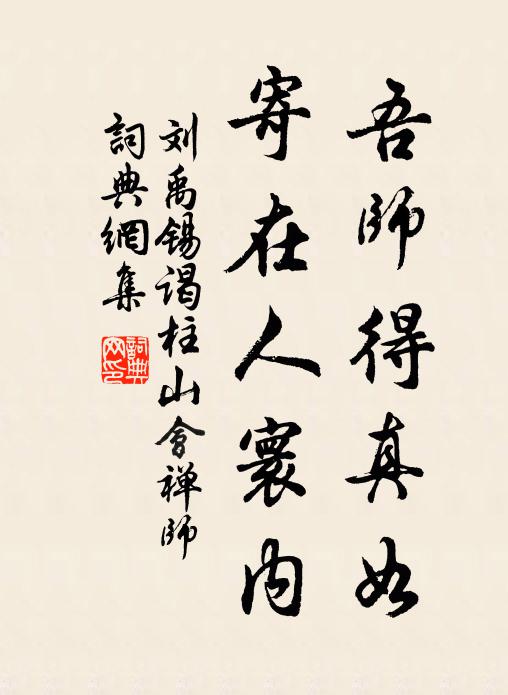 吾師得真如
寄在人寰内
刘禹锡谒柱山會禅师
詞典網集
詞典网印